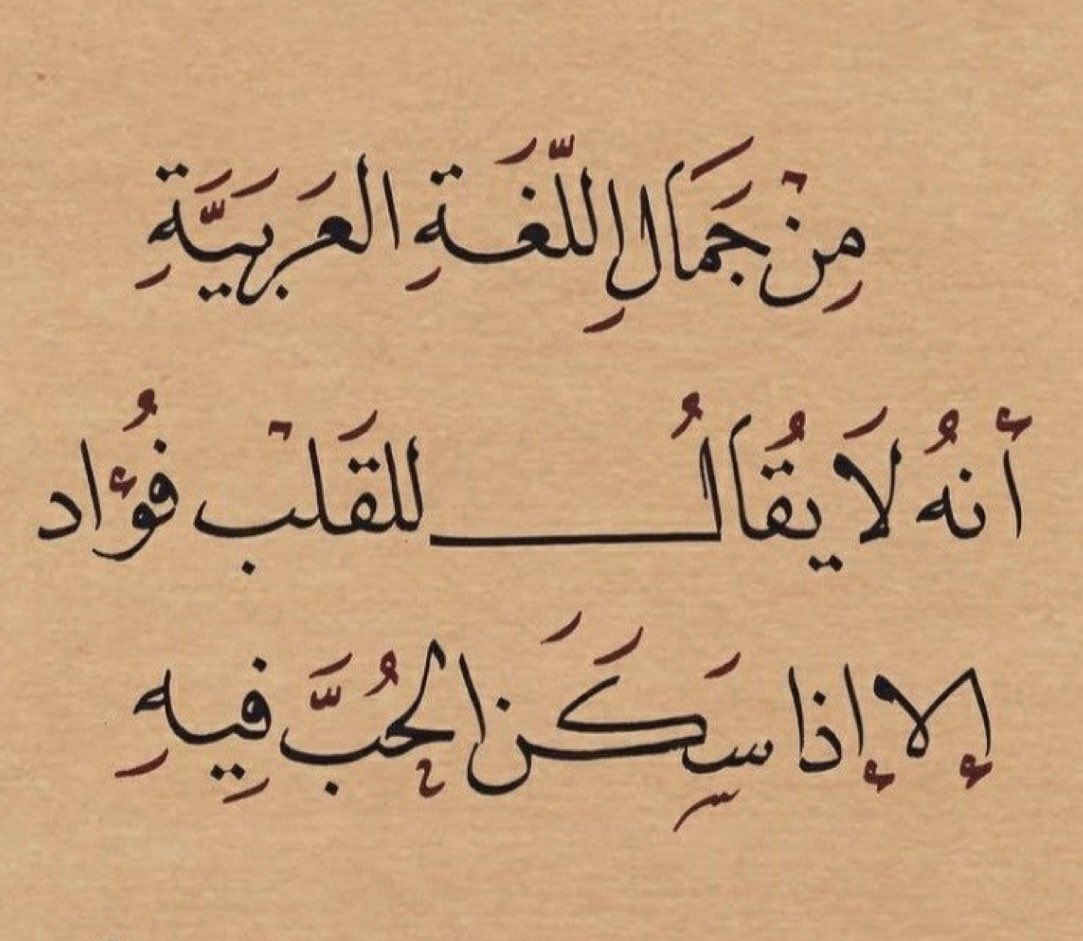 مِنْ جَمَالِ اللَّغَةِ العَرَبَيَّةِ
أَنهُ لَا يُقَالُ للقَلْب فُؤَاد
إلا إذا سَكَنَ الحُبَّ فِيهِ